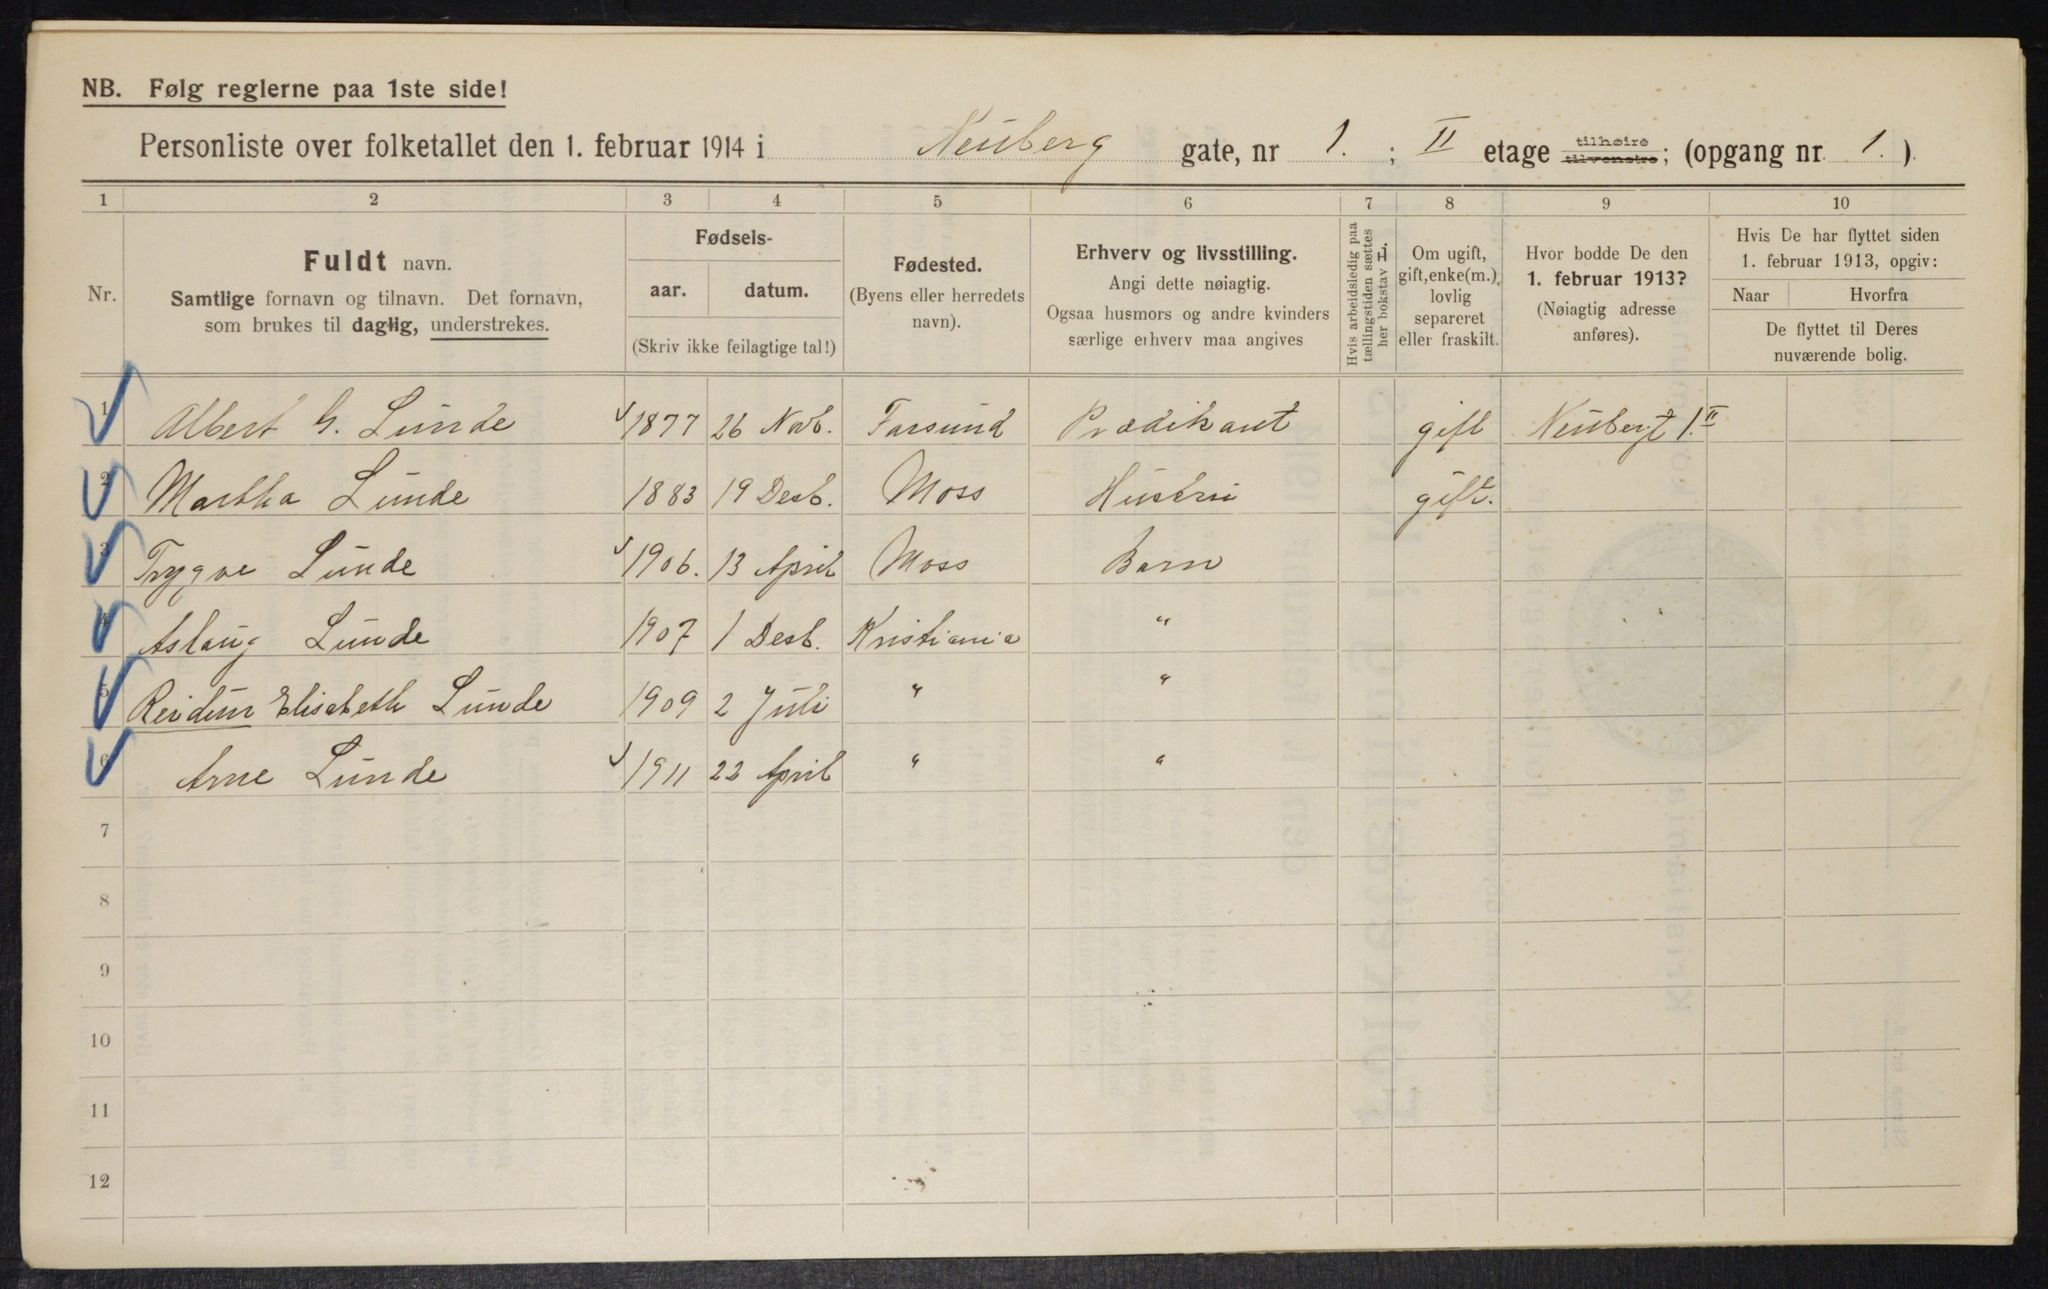 NB. Følg reglerne paa 1ste side!
Personliste over folketallet den 1. februar 1914 i Neuberg gate, nr 1. ; II etage tilhøire tilvenstre; (opgang nr. 1. ).
1 2 3 4 5 6 7 8 9 10
Nr.
Fuldt navn.
Samtlige fornavn og tilnavn. Det fornavn,
som brukes til daglig, understrekes.
Fødsels-
aar. datum.
(Skriv ikke feilagtige tal!)
Fødested.
(Byens eller herredets
navn).
Erhverv og livsstilling.
Angi dette nøiagtig.
Ogsaa husmors og andre kvinders
særlige erhverv maa angives
Hvis arbeidsledig paa
tællingstiden sættes
her bokstav L.
Om ugift,
gift, enke(m.),
lovlig
separeret
eller fraskilt.
Hvor bodde De den
1. februar 1913?
(Nøiagtig adresse
anføres).
Hvis De har flyttet siden
1. februar 1913, opgiv:
Naar Hvorfra
De flyttet til Deres
nuværende bolig.
1 Albert G. Lunde 1877 26 Novb. Farsund Prædikant gift Neubergt 1. II
2 Martha Lunde 1883 19 Desb. Moss Hustru gift.
3 Trygve Lunde 1906. 13 April Moss Barn
4 Aslaug Lunde 1907 1 Desb. Kristiania "
5 Reidun Elisabeth Lunde 1909 2 Juli " "
6 Arne Lunde 1911 22 April " "
7
8
9
10
11
12